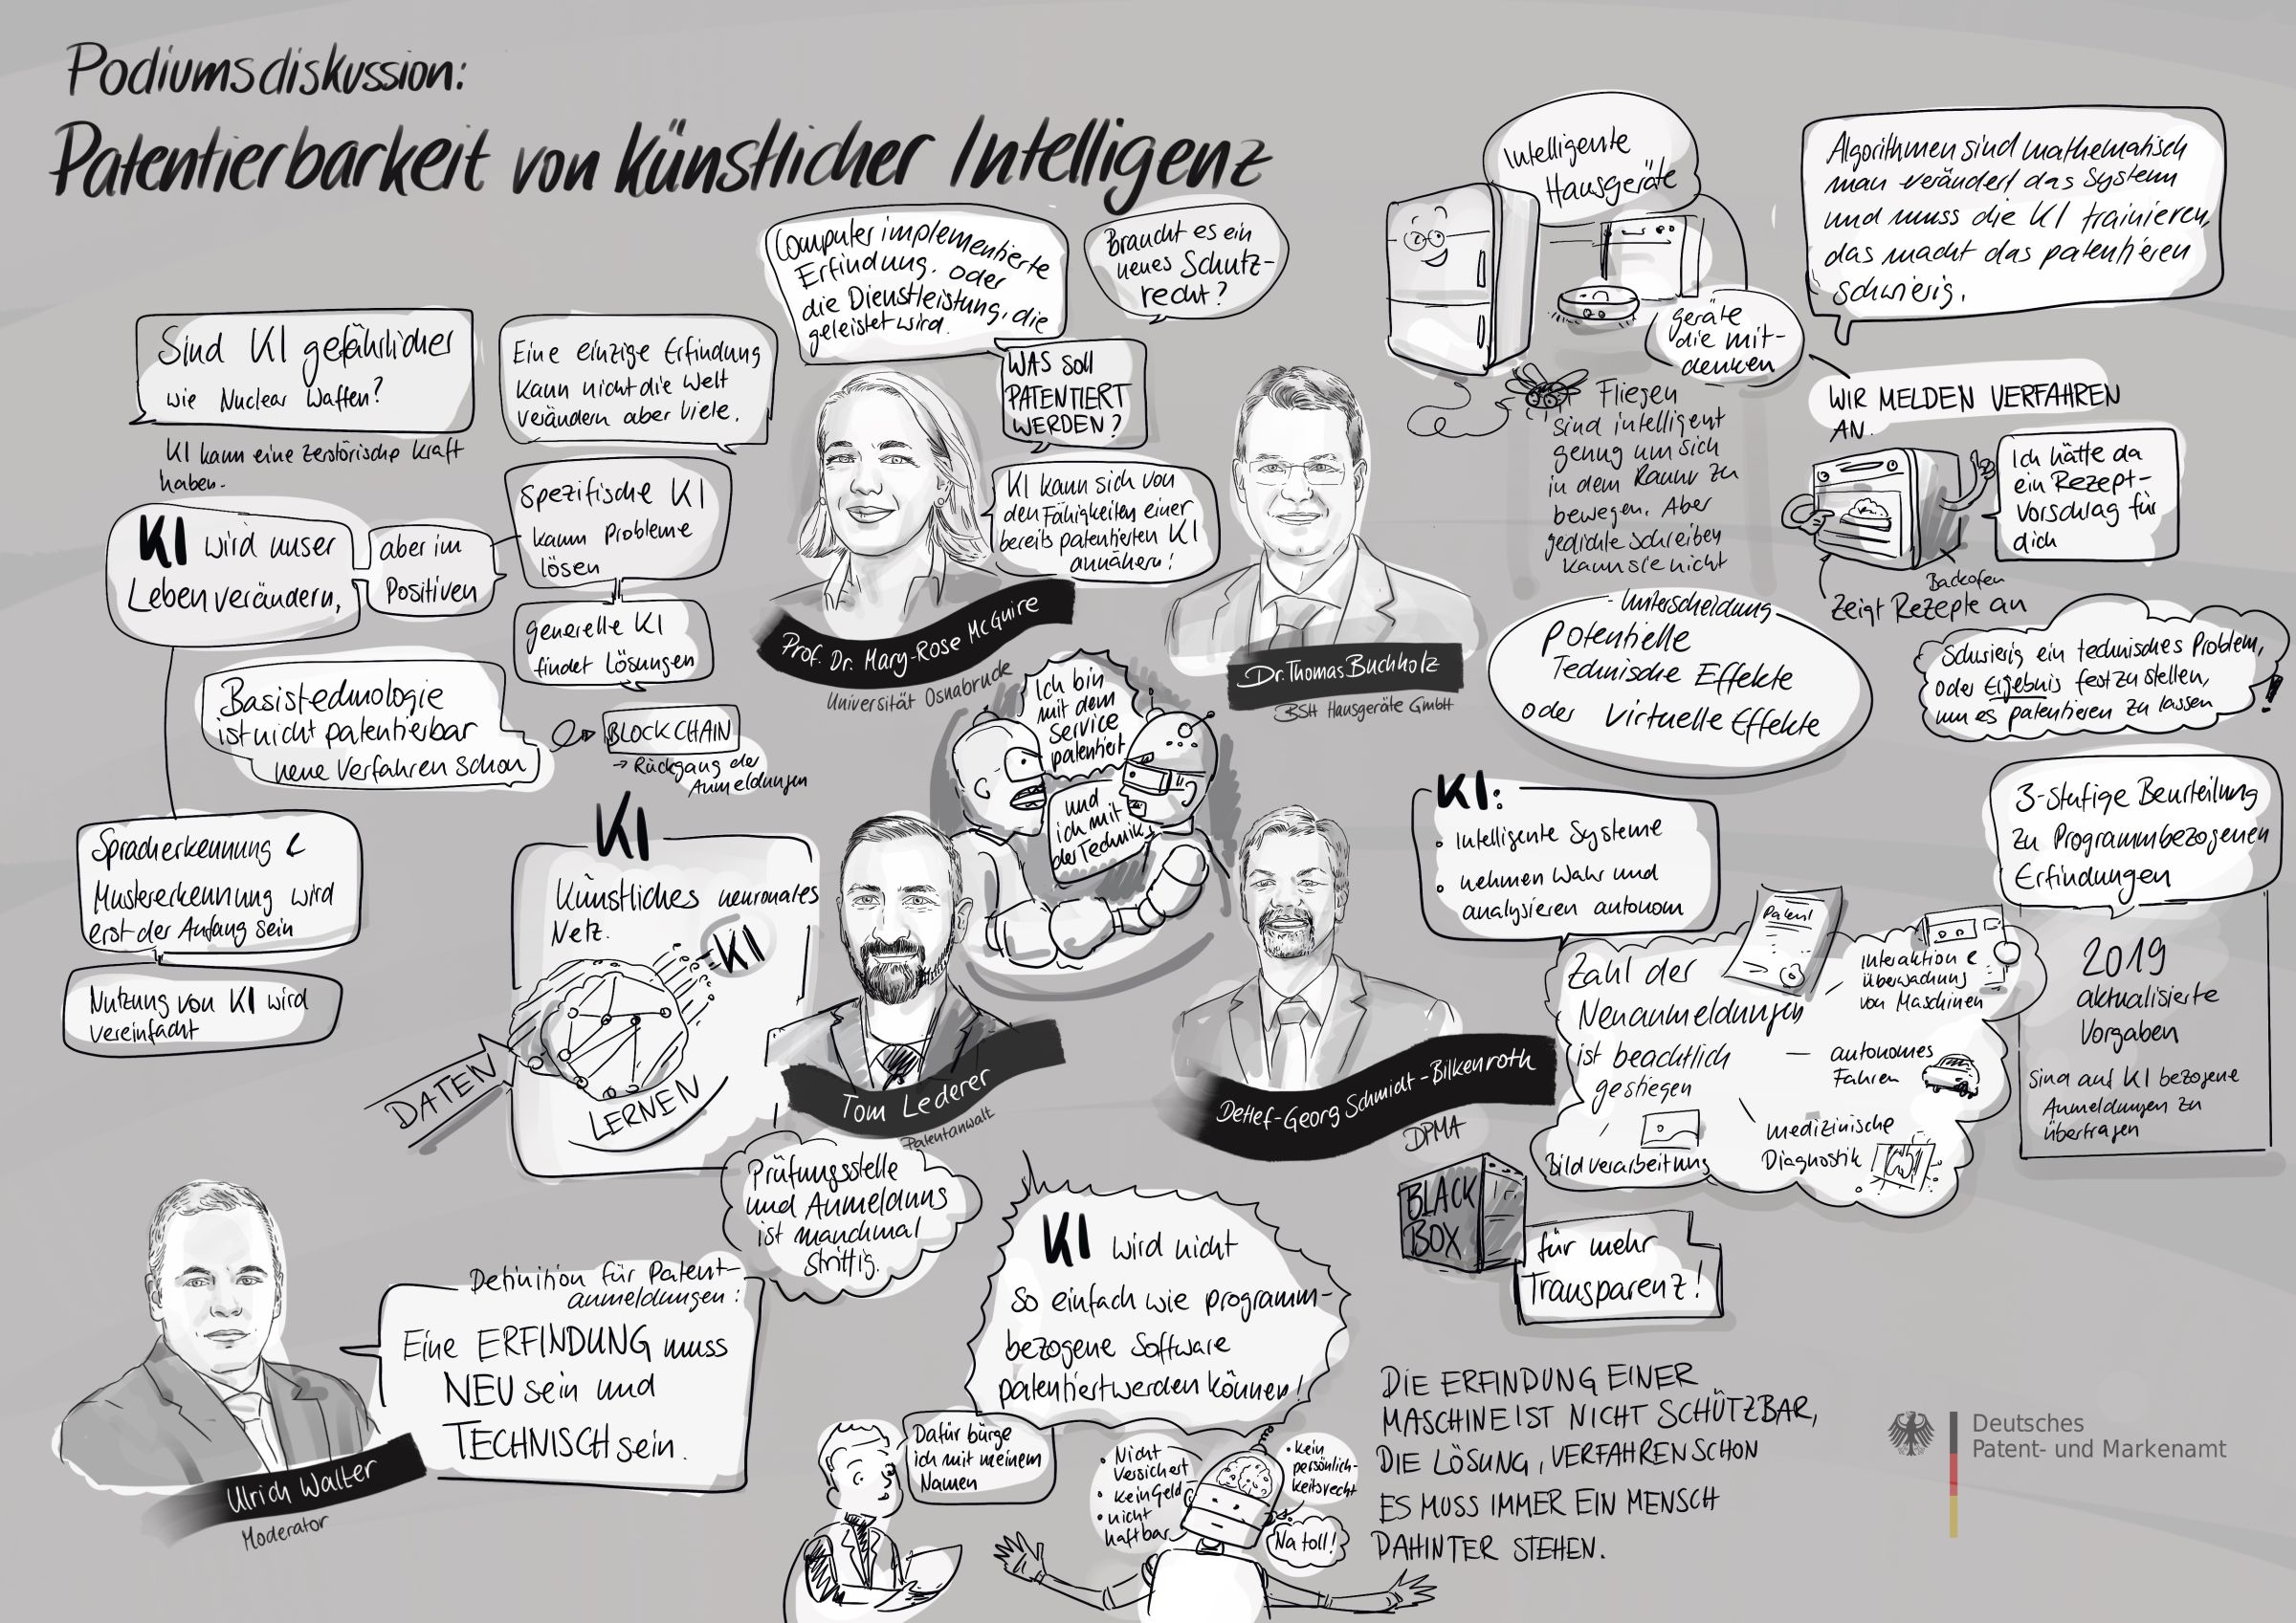 Podiumsdiskussion:
Patentierbarkeit von Künstlicher Intelligenz
Sind KI gefährlicher
wie Nuclear Waffen?
KI kann eine zerstörische Kraft
haben.
KI wird unser
Leben verändern,
aber im
Positiven
Eine einzige Erfindung
kann nicht die Welt
verändern aber viele.
spezifische KI
kann Probleme
lösen
generelle KI
findet Lösungen
Basistechnologie
ist nicht patentierbar
neue Verfahren schon
BLOCKCHAIN
→ Rückgang der
Anmeldungen
Spracherkennung &
Mustererkennung wird
erst der Anfang sein
Nutzung von KI wird
vereinfacht
Computer implementierte
Erfindung. oder
die Dienstleistung, die
geleistet wird.
Braucht es ein
neues Schutz-
recht?
WAS soll
PATENTIERT
WERDEN?
KI kann sich von
den Fähigkeiten einer
bereits patentierten KI
annähern!
Prof. Dr. Mary-Rose McGuire
Universität Osnabrück
Dr. Thomas Buchholz
BSH Hausgeräte GmbH
Intelligente
Hausgeräte
geräte
die mit-
denken
Algorithmen sind mathematisch
man verändert das System
und muss die KI trainieren,
das macht das patentieren
schwierig.
WIR MELDEN VERFAHREN
AN.
Fliegen
sind intelligent
genug um sich
in dem Raum zu
bewegen. Aber
gedichte schreiben
kann sie nicht
Ich hätte da
ein Rezept-
vorschlag für
dich
Backofen
zeigt Rezepte an
Unterscheidung
Potentielle
Technische Effekte
oder virtuelle Effekte
Schwierig ein technisches Problem,
oder Ergebnis festzustellen,
um es patentieren zu lassen
!
Ich bin
mit dem
Service
patentiert
und
ich mit
der Technik
KI
Künstliches neuronales
Netz.
KI
DATEN
LERNEN
Tom Lederer
Patentanwalt
Prüfungsstelle
und Anmeldung
ist manchmal
strittig.
Detlef-Georg Schmidt-Bilkenroth
DPMA
KI:
• Intelligente Systeme
• nehmen Wahr und
analysieren autonom
Zahl der
Neuanmeldungen
ist beachtlich
gestiegen
Patent
Interaktion &
überwachung
von Maschinen
autonomes
Fahren
medizinische
Diagnostik
Bildverarbeitung
3-stufige Beurteilung
zu Programmbezogenen
Erfindungen
2019
aktualisierte
Vorgaben
sind auf KI bezogene
Anmeldungen zu
übertragen
BLACK
BOX
für mehr
Transparenz!
Ulrich Walter
Moderator
Definition für Patent-
anmeldungen:
Eine ERFINDUNG muss
NEU sein und
TECHNISCH sein.
KI wird nicht
so einfach wie programm-
bezogene Software
patentiert werden können!
Dafür bürge
ich mit meinem
Namen
• Nicht
versichert
• kein Geld
• nicht
haftbar
• kein
persönlich-
keitsrecht
Na toll!
DIE ERFINDUNG EINER
MASCHINE IST NICHT SCHÜTZBAR,
DIE LÖSUNG, VERFAHREN SCHON
ES MUSS IMMER EIN MENSCH
DAHINTER STEHEN.
Deutsches
Patent- und Markenamt